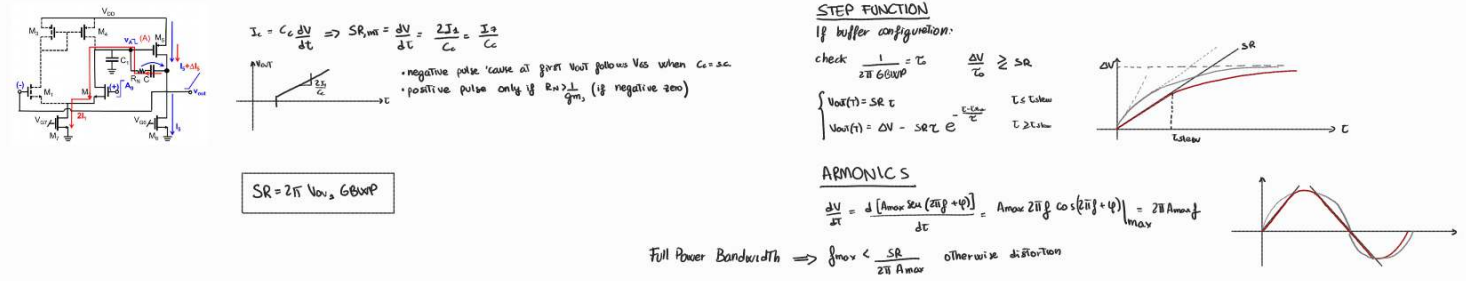 V_DD
M3
M4
M5
(A)
I5+ΔI5
C1
R_N
C
(-)
(+)
M1
v_out
2I1
V_G7
M7
V_G6
M6
I5
I_c = C_c dV/dt => SR,int = dV/dt = 2I1/C_c = I7/C_c
Vout
2I1/C_c
t
• negative pulse 'cause at first Vout follows VGS when C_c = s.c.
• positive pulse only if R_N > 1/gm, (if negative zero)
SR = 2π Vov, GBWP
STEP FUNCTION
If buffer configuration:
check 1/(2π GBWP) = τ0 ΔV/τ0 ≷ SR
Vout(t) = SR t t ≤ tslew
Vout(t) = ΔV - SR τ e t ≥ tslew
SR
ΔV
t
tslew
ARMONICS
dV/dt = d [Amax sen (2πf + φ)]/dt = Amax 2πf cos(2πf + φ)|max = 2π Amax f
Full Power Bandwidth => fmax < SR/(2π Amax) otherwise distortion